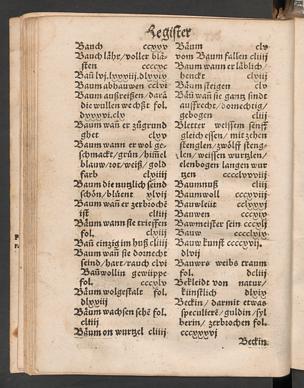 Register
Bauch ccxxv
Bauch lähr/voller blä-
sten ccccvc
Baum abhauwen cclvi
Baum außreissen/darā
die wullen wechßt fol.
Baum wañ er zügrund
ghet clv
Baum wann er wol ge-
schmackt/grün/himel
blauw/rot/weiß/gold
farb clviiij
Baum die nutzlich seind
schön/blüent clvij
Baum wañ er zerbrochē
ist cliiij
Bäum wann sie trieffen
fol. clviij
Bañ einzig im huß cliiij
Baum wañ sie domecht
seind/hart/rauch clvi
Baüwollin gewüppe
fol. cccxlv
Bäum wolgestalt fol.
dlxviij
Bäum wachsen sehē fol.
cliiij
Bäum on wurtzel cliiij
Bäum clv
vom Baum fallen cliiij
Baum wann er läblich/
henckt cliiij
Bäum steigen clv
Bäu wañ sie gantz sindt
auffrecht/domechtig/
gebogen cliij
Bletter weissen senff
gleich essen/mit zehen
stenglen/zwölff steng-
len/weissen wurtzlen/
elenbogen langen wur
tzen ccccclxxviij
Baumnuß cliij
Baumwoll ccccxviij
Bauwleut ccccxij
Bauwen ccccxiv
Bawmeister sein ccccxlj
Bauw ccccclxiv
Bauw kunst ccccxvij.
dlvij
Bauwrs weibs traum
fol. dcliij
Bekleidt von natur/
künstlich dlviv
Beckin/darmit etwas
speculierē/guldin/syl
berin/zerbrochen fol.
ccccxxxvj
Beckin.